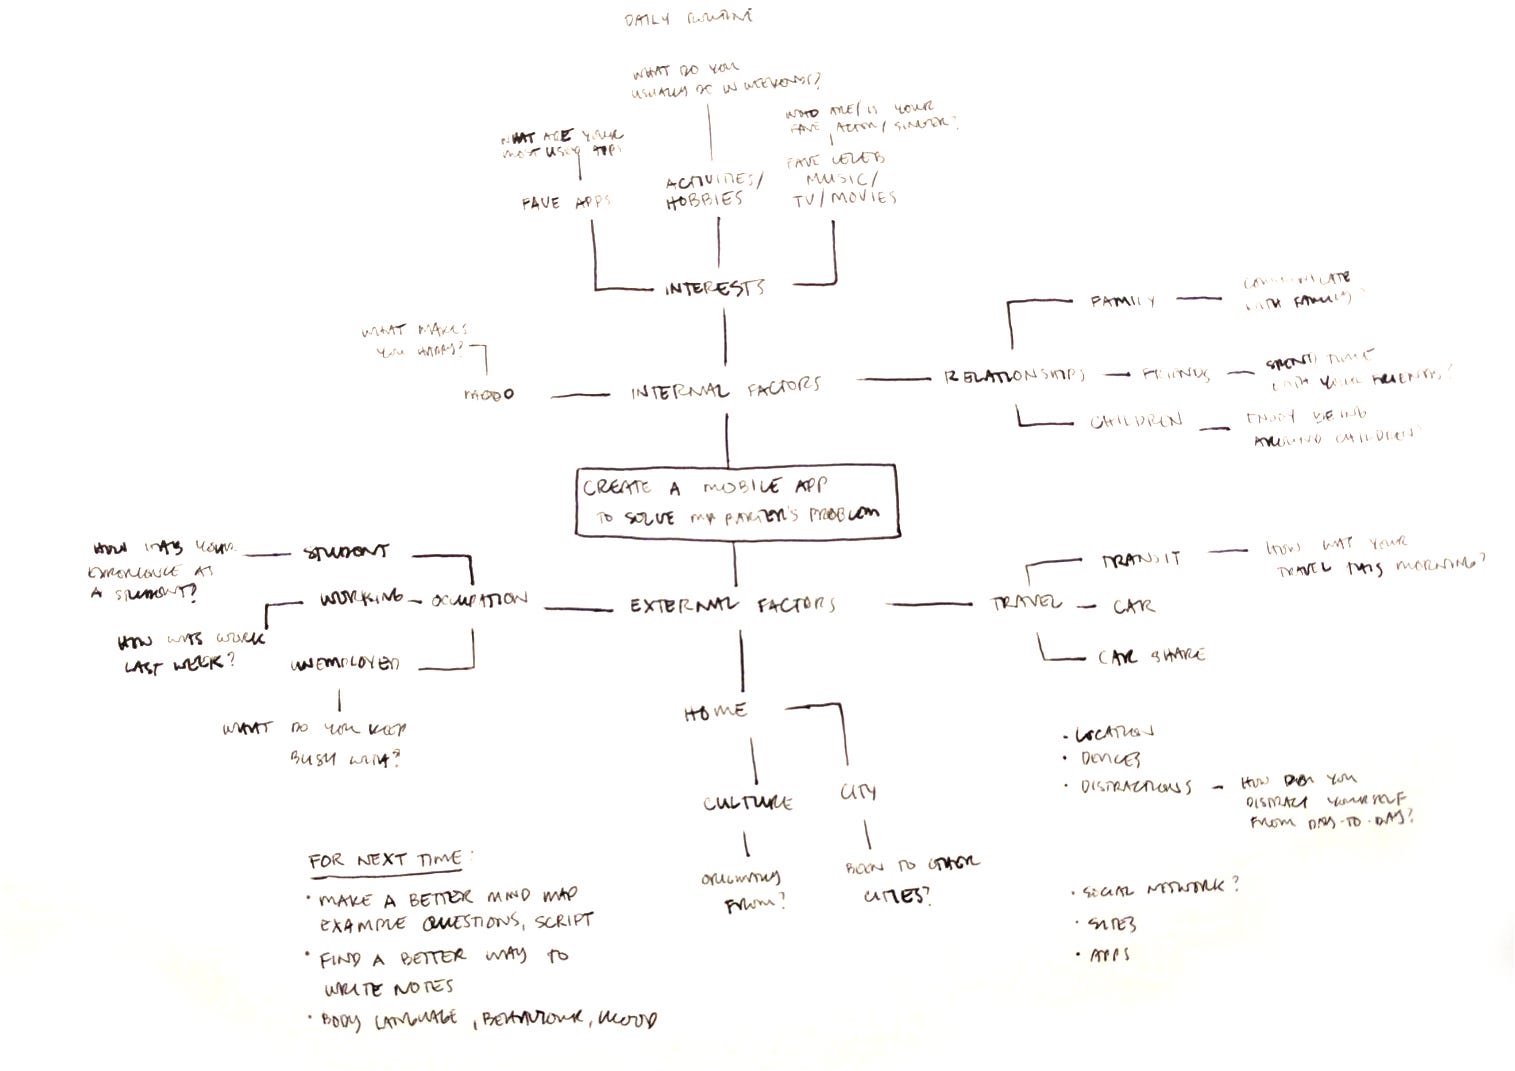 DAILY ROUTINE
WHAT DO YOU
USUALLY DO IN WEEKENDS?
WHO ARE/IS YOUR
FAVE ACTOR/SINGER?
WHAT ARE YOUR
MOST USED APPS
FAVE CELEB
MUSIC/
TV/MOVIES
ACTIVITIES/
HOBBIES
FAVE APPS
INTERESTS
FAMILY
COMMUNICATE
WITH FAMILY?
WHAT MAKES
YOU HAPPY?
MOOD
INTERNAL FACTORS
RELATIONSHIPS
FRIENDS
SPEND TIME
WITH YOUR FRIENDS?
CHILDREN
ENJOY BEING
AROUND CHILDREN
CREATE A MOBILE APP
TO SOLVE MY PARTER'S PROBLEM
HOW WAS YOUR
EXPERIENCE AS
A STUDENT?
STUDENT
WORKING
OCCUPATION
HOW WAS WORK
LAST WEEK?
UNEMPLOYED
WHAT DO YOU KEEP
BUSY WITH?
EXTERNAL FACTORS
TRAVEL
TRANSIT
HOW WAS YOUR
TRAVEL THIS MORNING?
CAR
CAR SHARE
HOME
CULTURE
CITY
ORIGINALLY
FROM?
BEEN TO OTHER
CITIES?
• LOCATION
• DEVICES
• DISTRACTIONS
HOW DO YOU
DISTRACT YOURSELF
FROM DAY-TO-DAY?
• SOCIAL NETWORK?
• SITES
• APPS
FOR NEXT TIME:
• MAKE A BETTER MIND MAP
EXAMPLE QUESTIONS, SCRIPT
• FIND A BETTER WAY TO
WRITE NOTES
• BODY LANGUAGE, BEHAVIOUR, MOOD